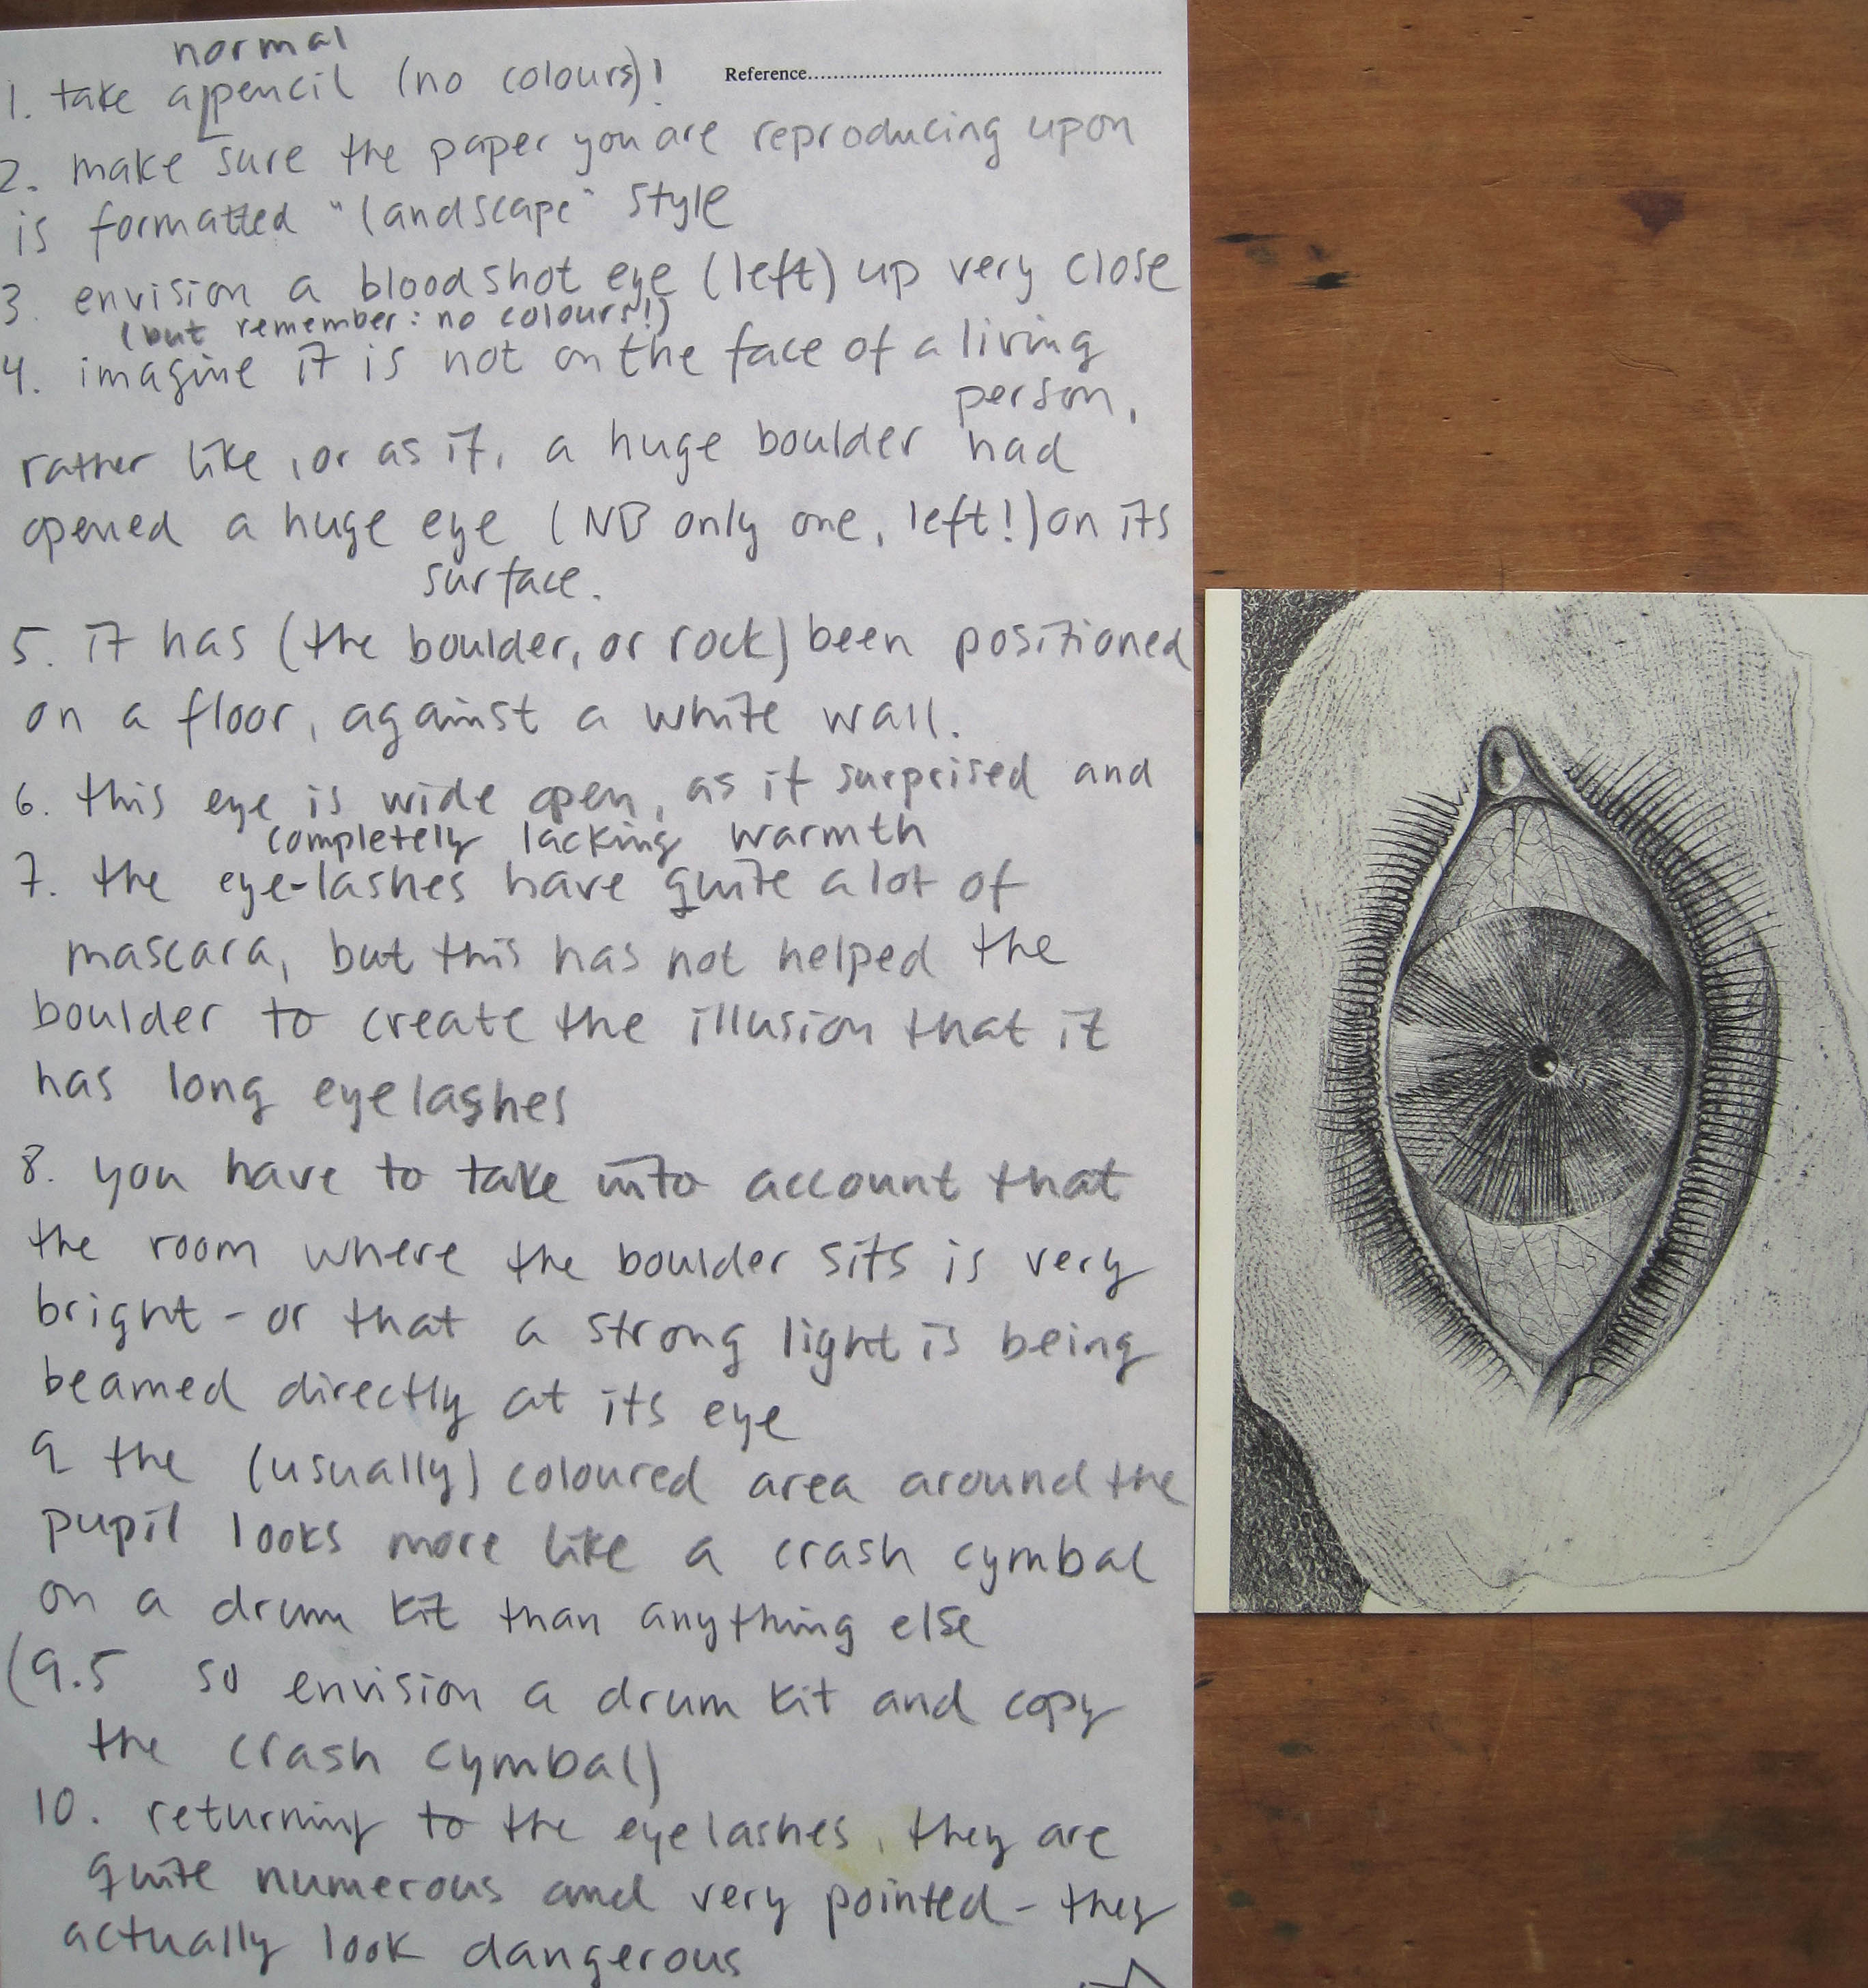 Reference......................................................................
normal
1. take a pencil (no colours)!
2. make sure the paper you are reproducing upon
is formatted "landscape" style
3. envision a bloodshot eye (left) up very close
(but remember: no colours!)
4. imagine it is not on the face of a living
person,
rather like, or as if, a huge boulder had
opened a huge eye (NB only one, left!) on its
surface.
5. it has (the boulder, or rock) been positioned
on a floor, against a white wall.
6. this eye is wide open, as if surprised and
completely lacking warmth
7. the eye-lashes have quite a lot of
mascara, but this has not helped the
boulder to create the illusion that it
has long eyelashes
8. you have to take into account that
the room where the boulder sits is very
bright - or that a strong light is being
beamed directly at its eye
9 the (usually) coloured area around the
pupil looks more like a crash cymbal
on a drum kit than anything else
(9.5 so envision a drum kit and copy
the crash cymbal)
10. returning to the eyelashes, they are
quite numerous and very pointed - they
actually look dangerous